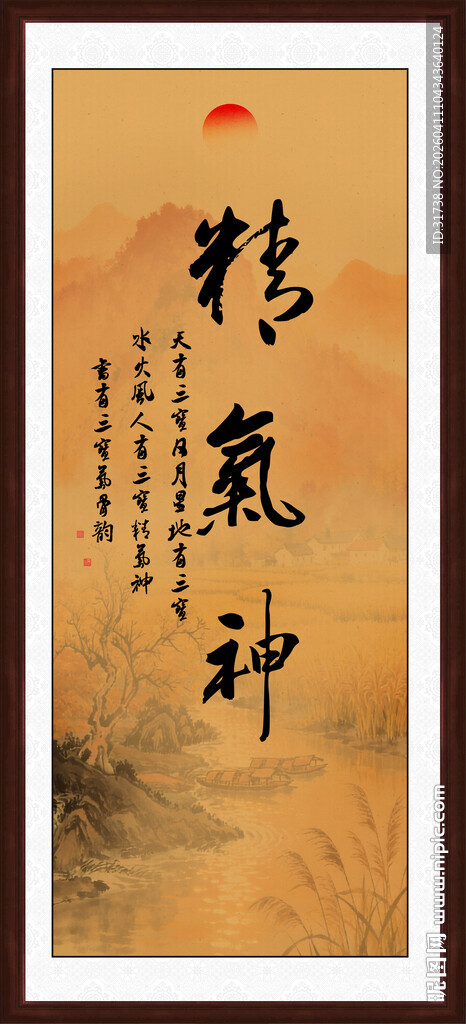 精氣神
天有三寶日月星地有三寶
水火風人有三寶精氣神
書有三寶氣骨韵
ID:31738 NO:20260411104343640124
昵图网 www.nipic.com